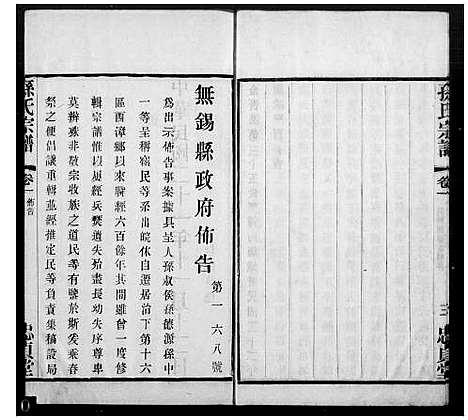 無錫縣政府佈告 第一六八號
為出示佈告事案據具呈人孫叔侯孫德源孫中
一等呈稱竊民等系出皖休自遷居治下第十六
區西漳鄉以來歷經六百餘年其間雖曾一度修
輯宗譜惟以屢經兵燹遺失殆盡長幼失序尊卑
莫辨殊非敬宗收族之道民等有鑒於斯爰乘春
祭之便倡議重輯並經推定民等負責集稿設局
孫氏宗譜
卷一
佈告
忠貞堂
孫氏宗譜
卷一
三
忠貞堂